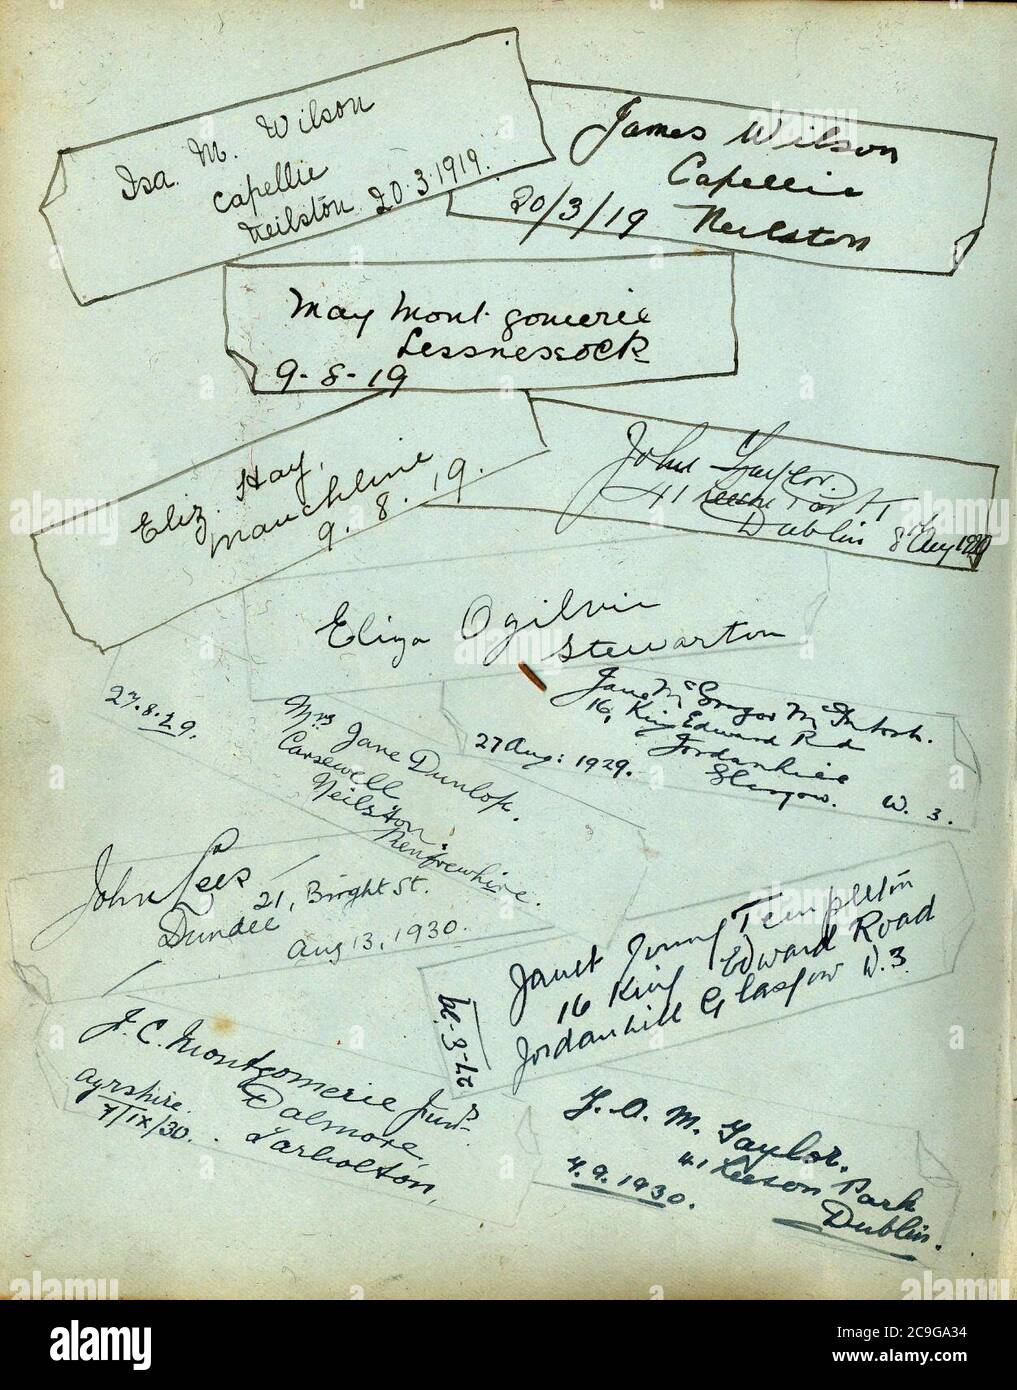 Isa. M. Wilson
Capellie
Neilston 20.3.1919.
James Wilson
Capellie
20/3/19 Neilston
May Montgomerie
Lessnessock
9-8-19
Eliz. Hay,
Mauchline
9. 8. 19.
John Taylor.
41 Park
Dublin 8th Aug
Eliza Ogilvie
Stewarton
27.8.29.
Mrs Jane Dunlop.
Carsewell
Neilston
Renfrewshire.
Jane McGregor McIntosh.
16, King Edward Rd
Jordanhill
27 Aug: 1929.
Glasgow. W. 3.
John Lees
21, Bright St.
Dundee
Aug 13, 1930.
Janet Young Templeton
16 King Edward Road
Jordanhill Glasgow W.3.
27-8-29
J. C. Montgomerie Junr.
Dalmore,
Tarbolton,
Ayrshire.
7/IX/30.
J. A. M. Taylor.
41 Leeson Park
Dublin.
7.9.1930.
alamy
Image ID: 2C9GA34
www.alamy.com